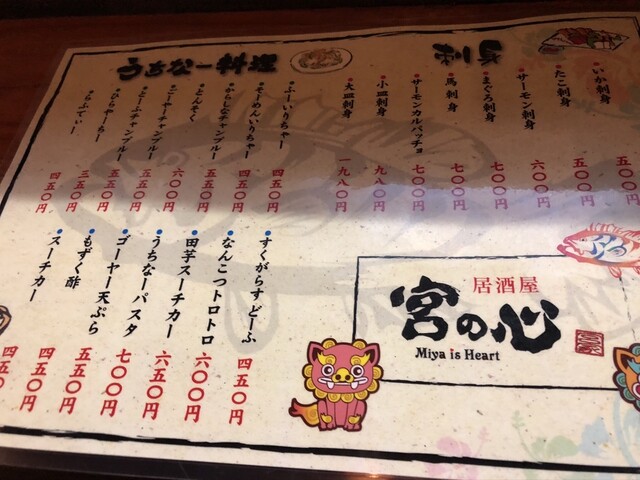 刺身
いか刺身 五五〇円
たこ刺身 五五〇円
サーモン刺身 六〇〇円
まぐろ刺身 七〇〇円
馬刺身 七〇〇円
サーモンカルパッチョ 七〇〇円
小皿刺身 九八〇円
大皿刺身 一九八〇円
うちなー料理
ふーいりちゃー 四五〇円
そーめんいりちゃー 四五〇円
五五〇円
とんそく 六〇〇円
ゴーヤーチャンプルー 五五〇円
チャンプルー 五五〇円
三五〇円
らふてぃー 四五〇円
すくがらすどーふ 四五〇円
なんこつトロトロ 六〇〇円
田芋スーチカー 六五〇円
うちなーパスタ 七〇〇円
ゴーヤー天ぷら 五五〇円
もずく酢 四五〇円
スーチカー 四五〇円
居酒屋
宮の心
Miya is Heart